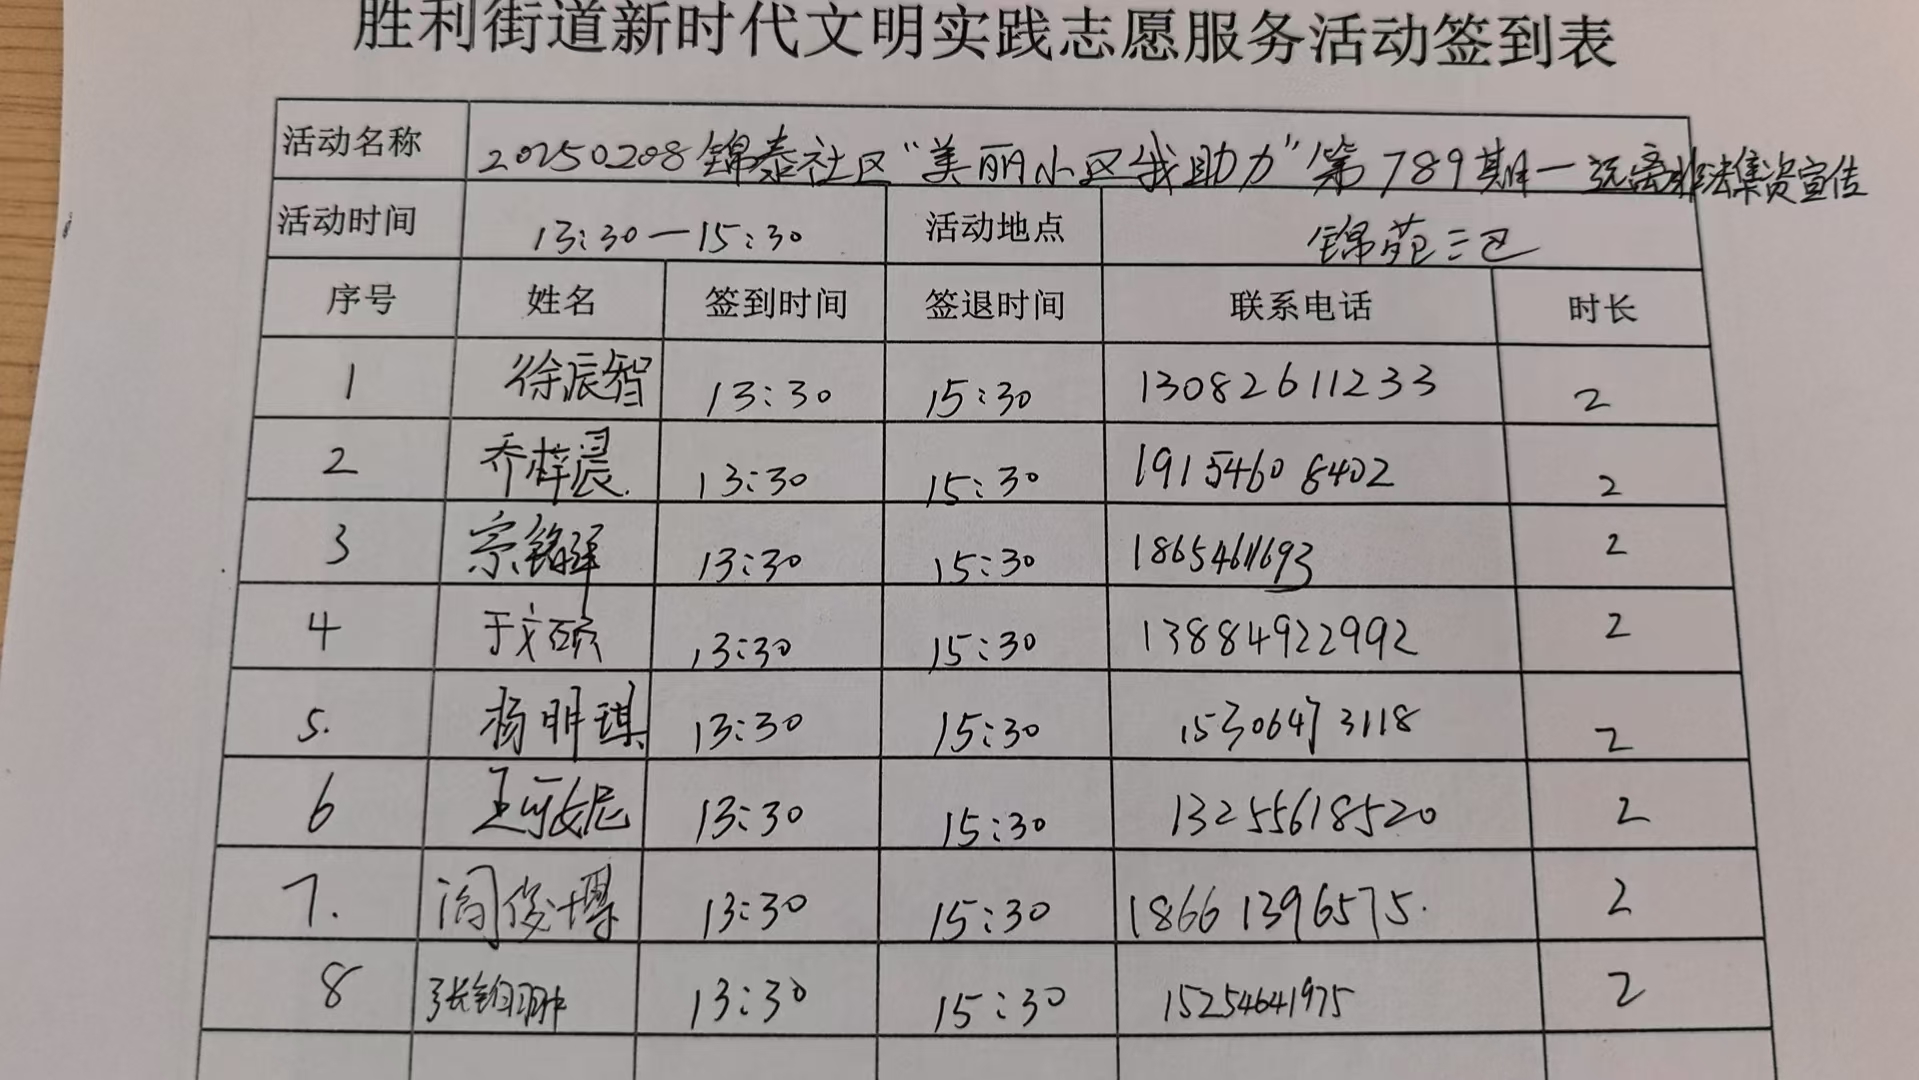 胜利街道新时代文明实践志愿服务活动签到表
活动名称 20250208锦泰社区“美丽小区我助力”第789期—远离非法集资宣传
活动时间 13:30—15:30 活动地点 锦苑三区
序号 姓名 签到时间 签退时间 联系电话 时长
1 徐辰智 13:30 15:30 13082611233 2
2 乔梓晨 13:30 15:30 19154608402 2
3 宗铭泽 13:30 15:30 18654611693 2
4 于文硕 13:30 15:30 13884922992 2
5. 杨明琪 13:30 15:30 15306473118 2
6 王可妮 13:30 15:30 13255618520 2
7. 阎俊博 13:30 15:30 18661396575. 2
8 张钧翀 13:30 15:30 15254641975 2